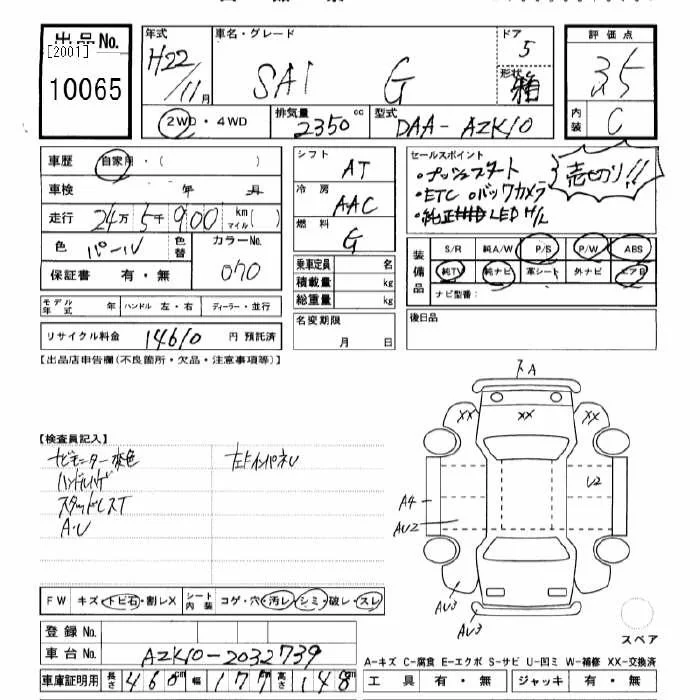 出品No.
[2001]
10065
年式
H22/11月
車名・グレード
SAI G
ドア
5
形状
箱
評価点
3.5
内装
C
2WD・4WD
排気量
2350cc
型式
DAA-AZK10
車歴 自家用・( )
車検 年 月
走行 24万5千900 km マイル( )
色 パール 色替 カラーNo.
070
保証書 有・無
モデル年式 年 ハンドル 左・右 ディーラー・並行
リサイクル料金 14610 円 預託済
シフト
AT
冷房
AAC
燃料
G
乗車定員 名
積載量 kg
総重量 kg
名変期限
月 日
セールスポイント
・プッシュスタート
・ETC ・バックカメラ
・純正 LED H/L
売切り!!
装備品
S/R 純A/W P/S P/W ABS
純TV 純ナビ 革シート 外ナビ エアB
ナビ型番:
後日品
【出品店申告欄(不良箇所・欠品・注意事項等)】
【検査員記入】
ナビモニター変色
ハンドルハゲ
スタッドレスT
A・U
左ドインパネU
A
XX
XX
XX
U2
A4
AU2
AU3
AU3
スペア
FW キズ・トビ石・割レX シート内装 コゲ・穴・汚レ・シミ・破レ・スレ
登録No.
車台No. AZK10-2032739
車庫証明用 長さ 460cm 幅 177cm 高さ 148cm
A-キズ C-腐食 E-エクボ S-サビ U-凹ミ W-補修 XX-交換済
工具 有・無 ジャッキ 有・無